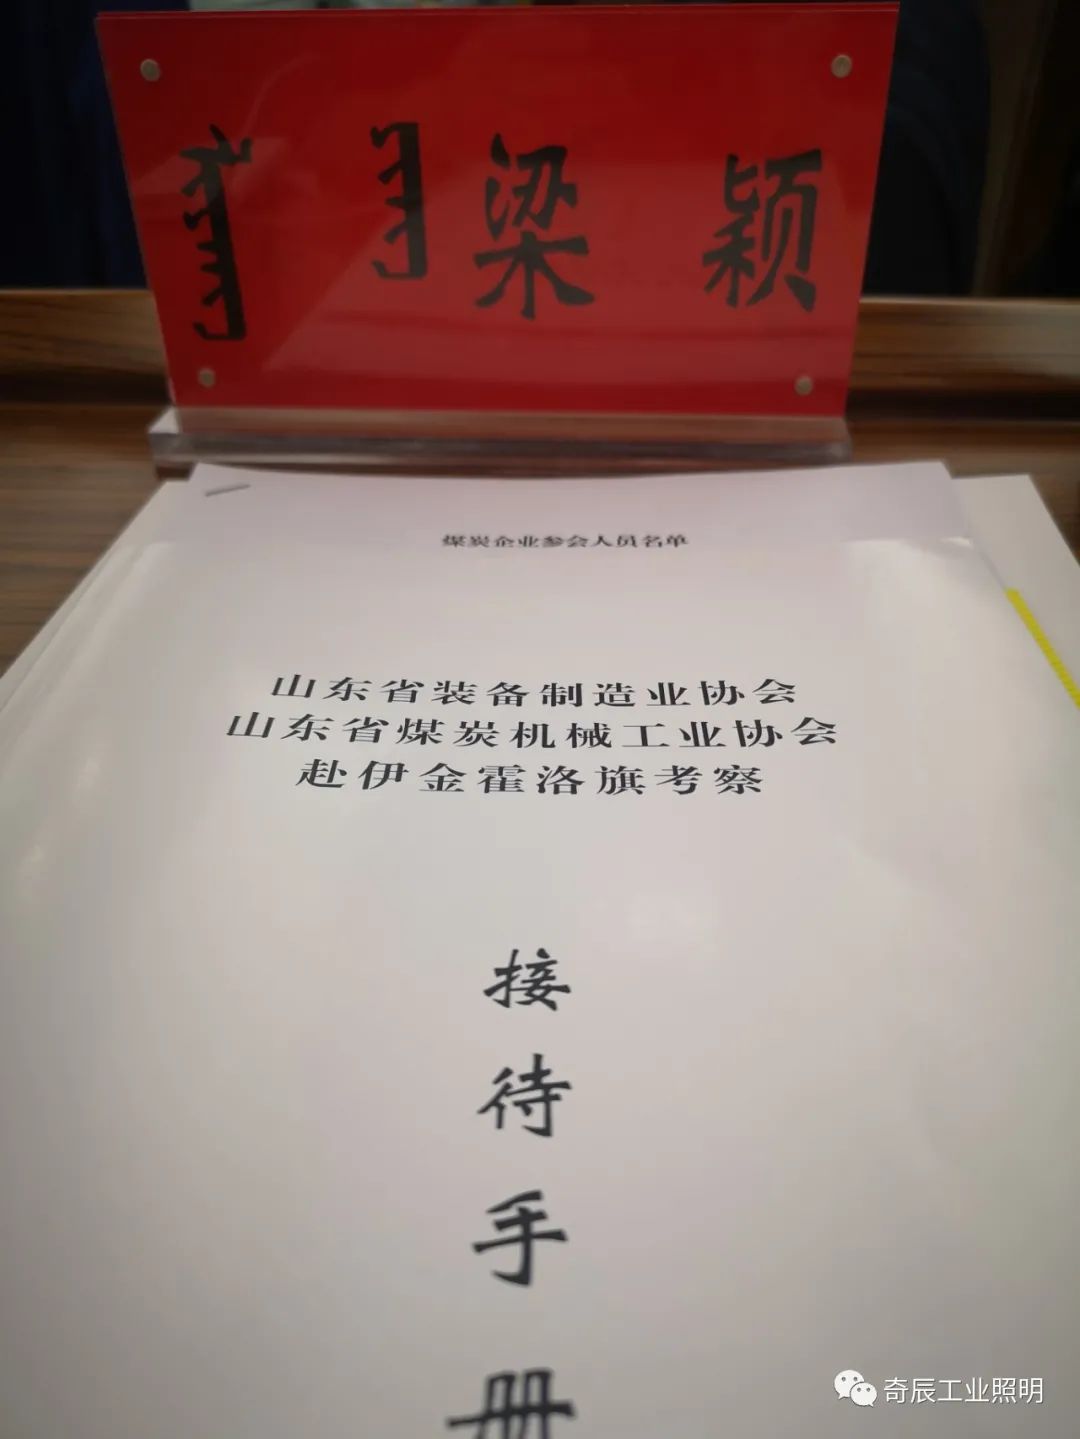 梁颖
煤炭企业参会人员名单
山东省装备制造业协会
山东省煤炭机械工业协会
赴伊金霍洛旗考察
接
待
手
册
奇辰工业照明